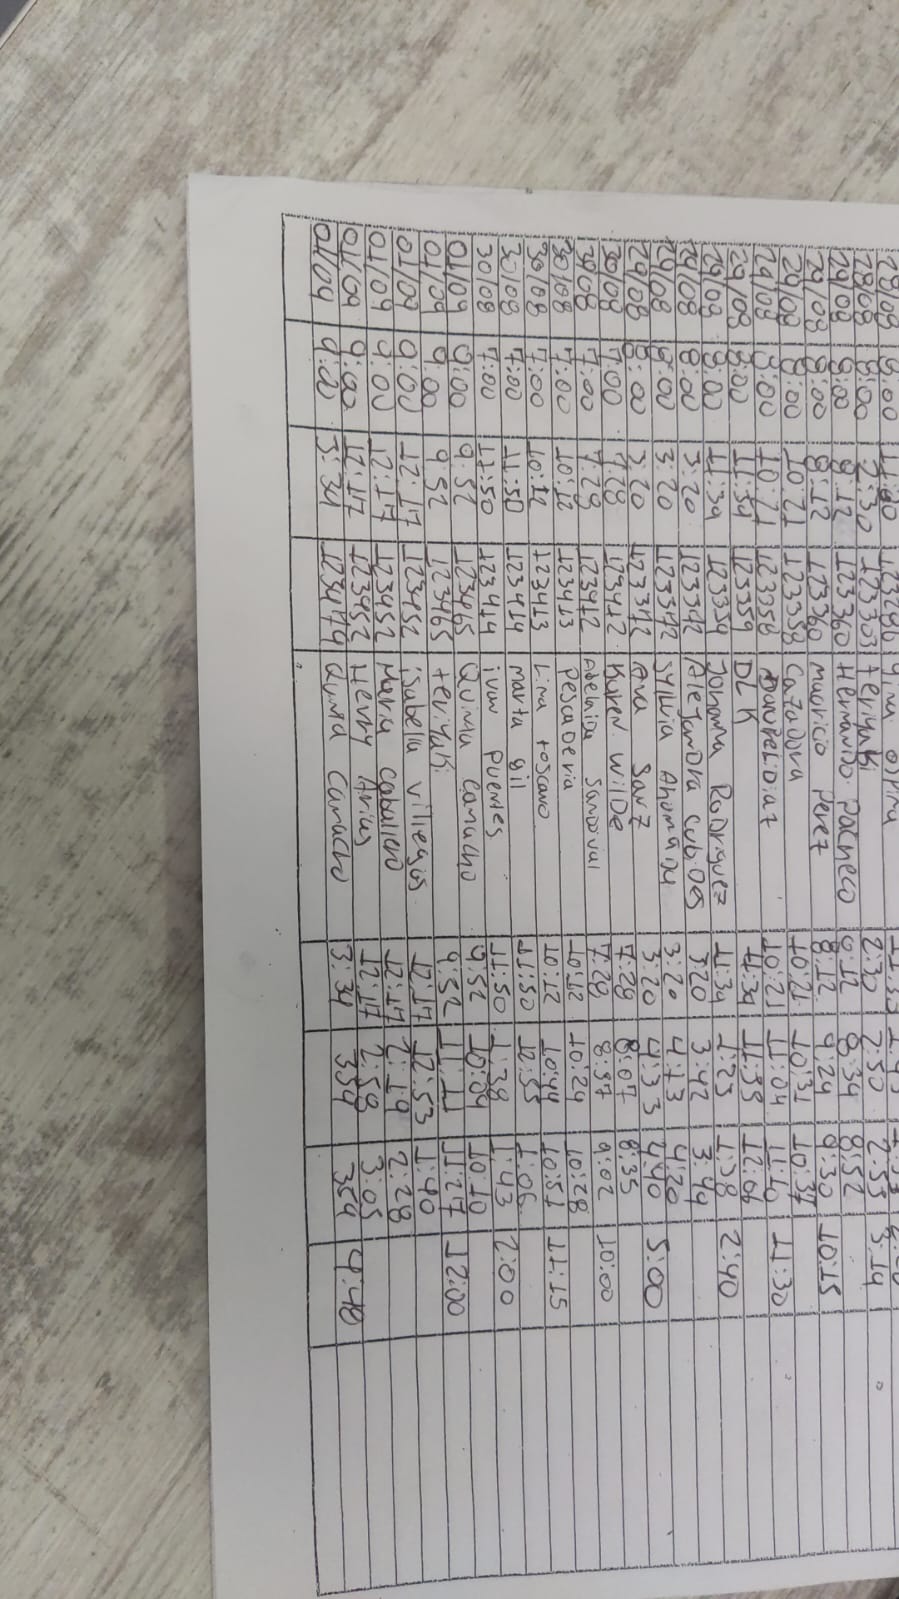 28/08 2:30 123303 teriyaki 2:30 2:50 2:53 5:14
29/08 8:00 8:12 123360 Hernando Pacheco 8:12 8:34 8:52
29/08 8:00 8:12 123360 mauricio Perez 8:12 9:24 9:30 10:15
29/08 8:00 10:21 123358 Cazadora 10:21 10:31 10:37
29/08 8:00 10:21 123358 10:21 11:04 11:10 11:30
29/08 8:00 11:39 123359 DLK 11:39 11:58 12:06
29/08 8:00 11:39 123359 Johanna Rodriguez 11:39 1:23 1:38 2:40
29/08 8:00 3:20 123372 Alejandra cubides 3:20 3:42 3:44
29/08 8:00 3:20 123372 Sylvia Ahumada 3:20 4:13 4:20
29/08 8:00 3:20 123372 Ana Sanz 3:20 4:33 4:40 5:00
30/08 7:00 7:28 123412 Karen Wilde 7:28 8:07 8:35
30/08 7:00 7:28 123412 Adelaida Sandoval 7:28 8:57 9:02 10:00
30/08 7:00 10:12 123413 Pescaderia 10:12 10:24 10:28
30/08 7:00 10:12 123413 Lina toscano 10:12 10:44 10:51 11:15
30/08 7:00 11:50 123414 marta gil 11:50 12:55 1:06
30/08 7:00 11:50 123414 ivan Puentes 11:50 1:38 1:43 2:00
01/09 9:00 9:52 123465 Quinta Camacho 9:52 10:04 10:10
01/09 9:00 9:52 123465 teriyaki 9:52 11:11 11:27 12:00
01/09 9:00 12:17 123452 isabella villegas 12:17 12:53 1:40
01/09 9:00 12:17 123452 Maria Caballero 12:17 2:19 2:28
01/09 9:00 12:17 123452 Henry Arias 12:17 2:58 3:05
01/09 9:00 3:34 123474 Quinta Camacho 3:34 354 354 4:40